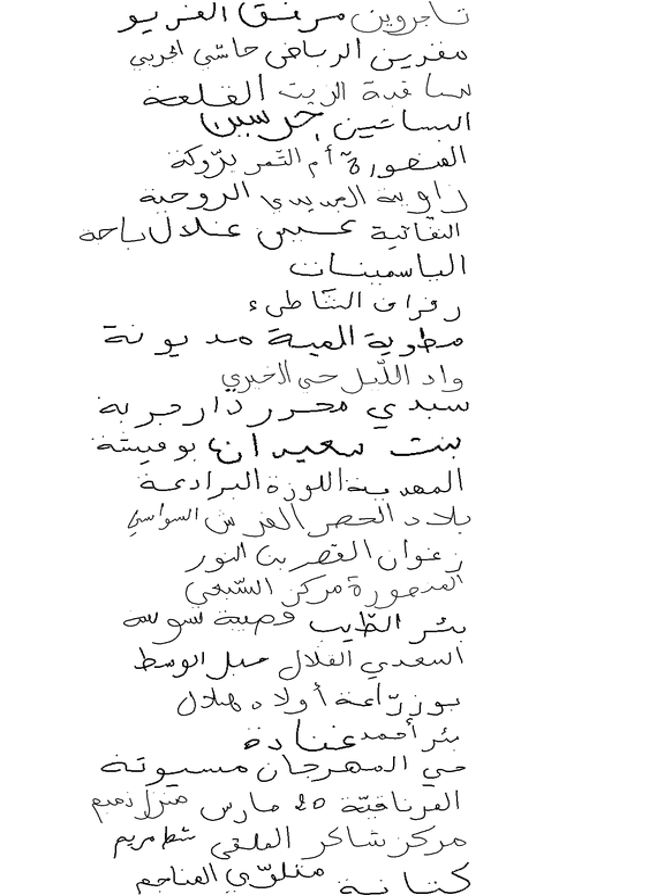 تاجروين مرفق الغريو
مغرين الرياض حاشي الحربي
ساقية الزيت القلعة
البساتين جرسين
المنصورة أم الثمر بزوكة
زاوية الجديدي الروحية
النفاتية عميص علال باحة
الياسمينات
رفراف الشّاطىء
مطوية الميّة مديونة
واد اللّيل حي الخيري
سيدي محرز دار جربة
بنت سعيدان بوفيشة
المهدية اللوزة البرادعة
بلاد الحضر الفرش السواسي
زغوان القصر بن النور
المنصورة مركز السّبعي
بئر الطّيب قصيبة سوسة
السعدي القلال جبل الوسط
بوزرّاعة أولاد هلال
بئر أحمد عنادة
حي المهرجان مسيوتة
الفرناقيّة 20 مارس منزل نعيم
مركز شاكر الملقى شط مريم
كتانة متلوّي المناجم